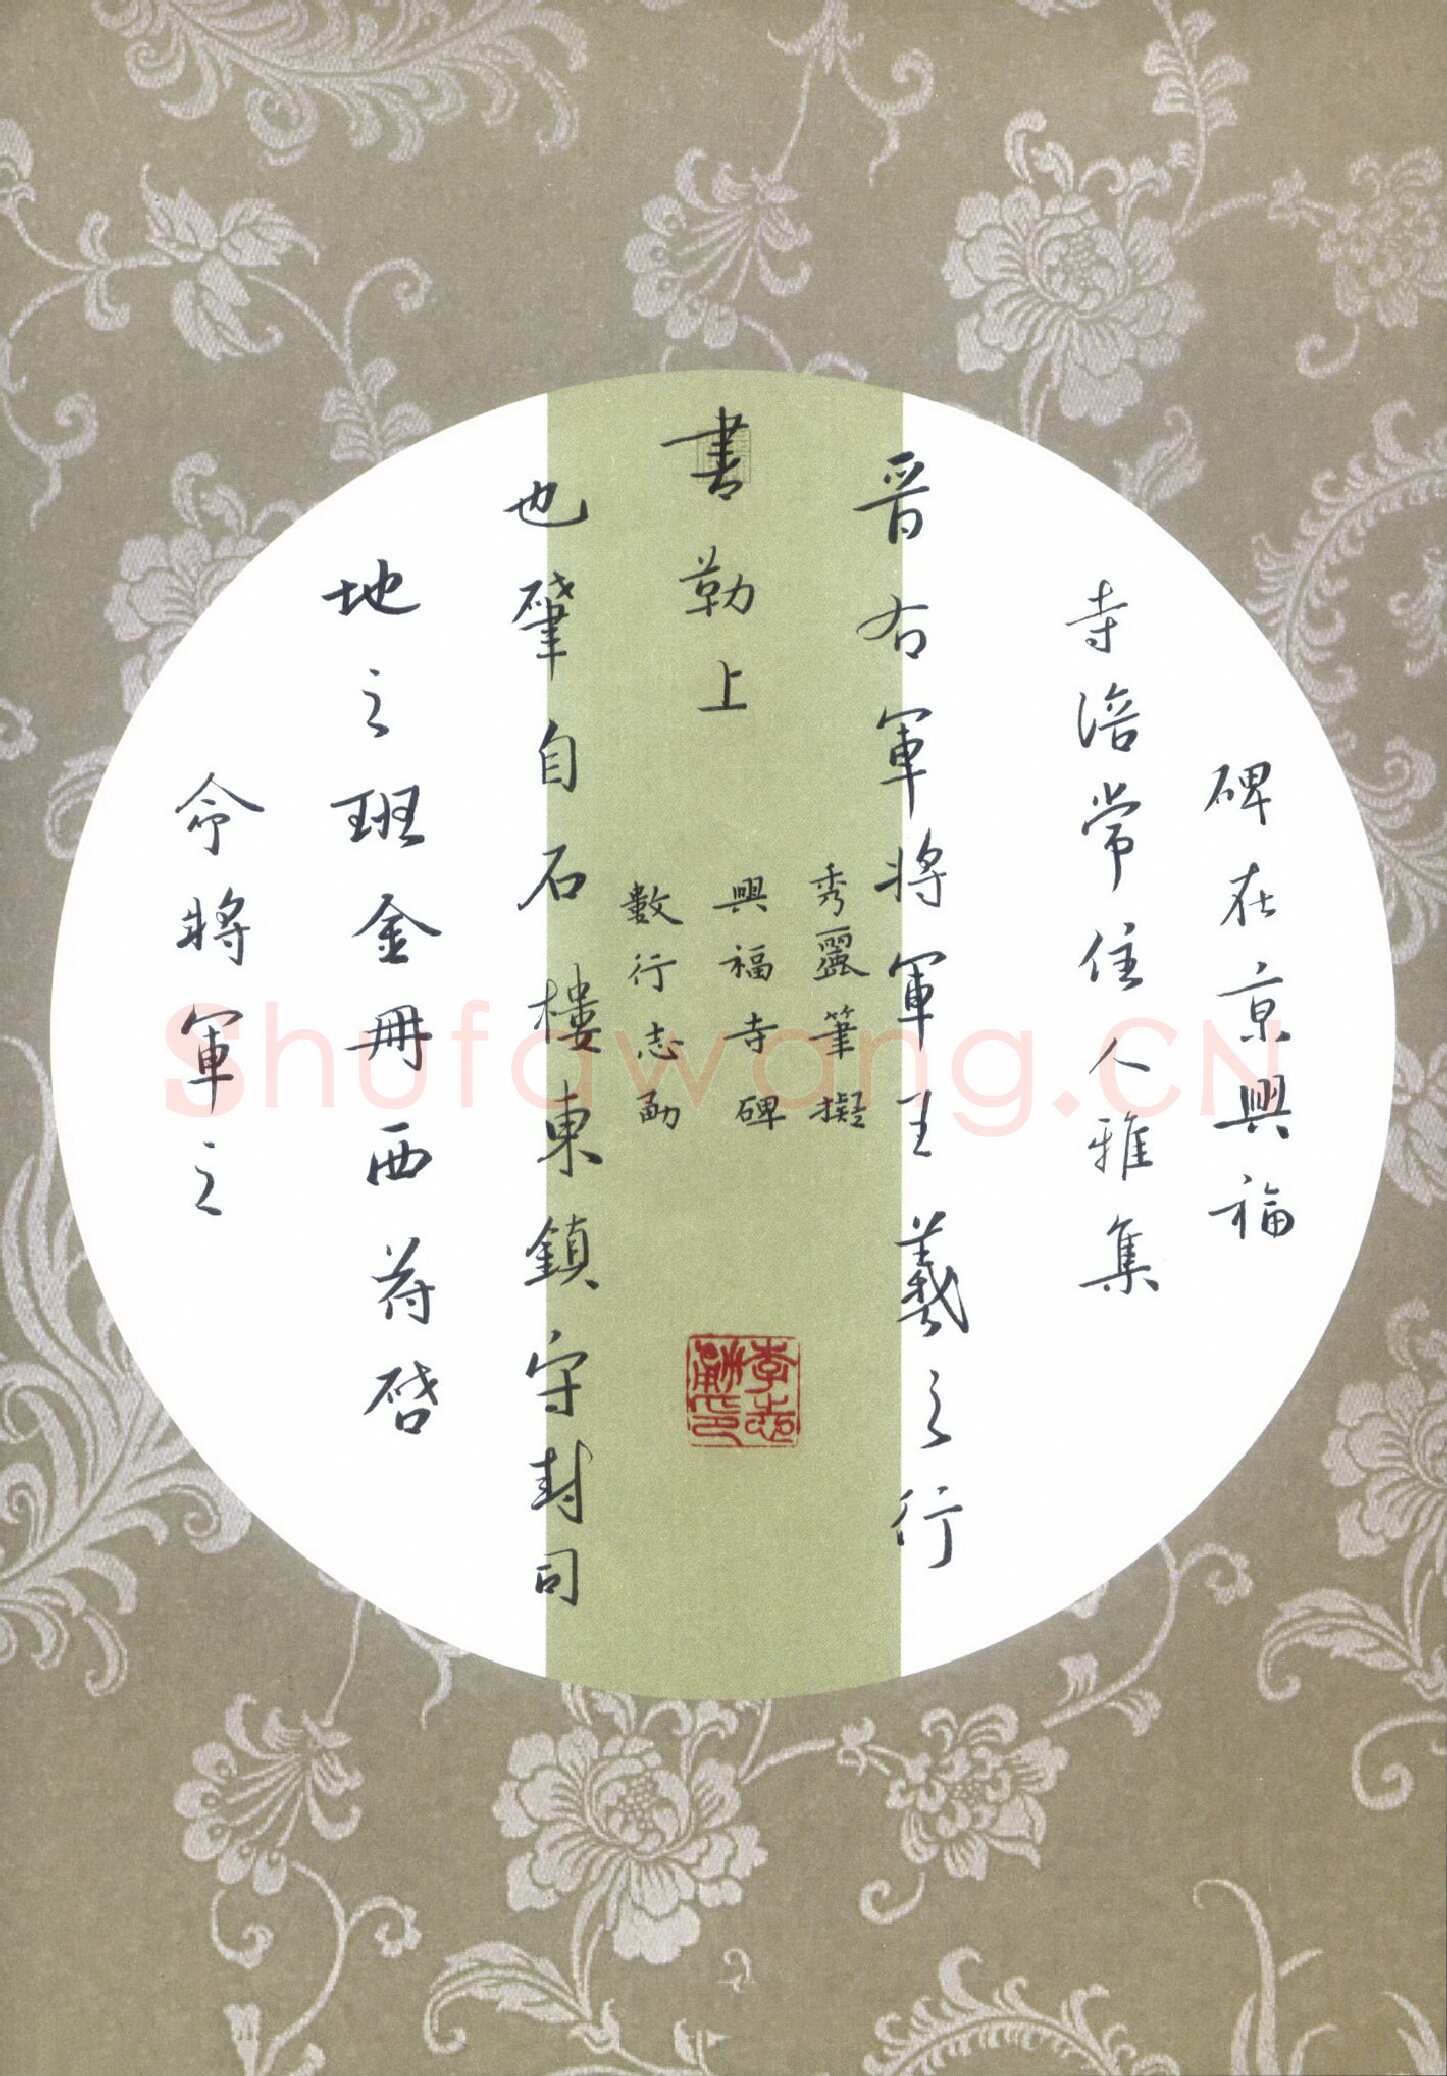 碑在京興福
寺涪常住人雅集
晉右軍將軍王羲之行
書勒上
秀麗筆擬
興福寺碑
數行志勈
也肇自石樓東鎮守封司
地之班金冊西苻啓
命將軍之
李志勈印
Shufawang.CN